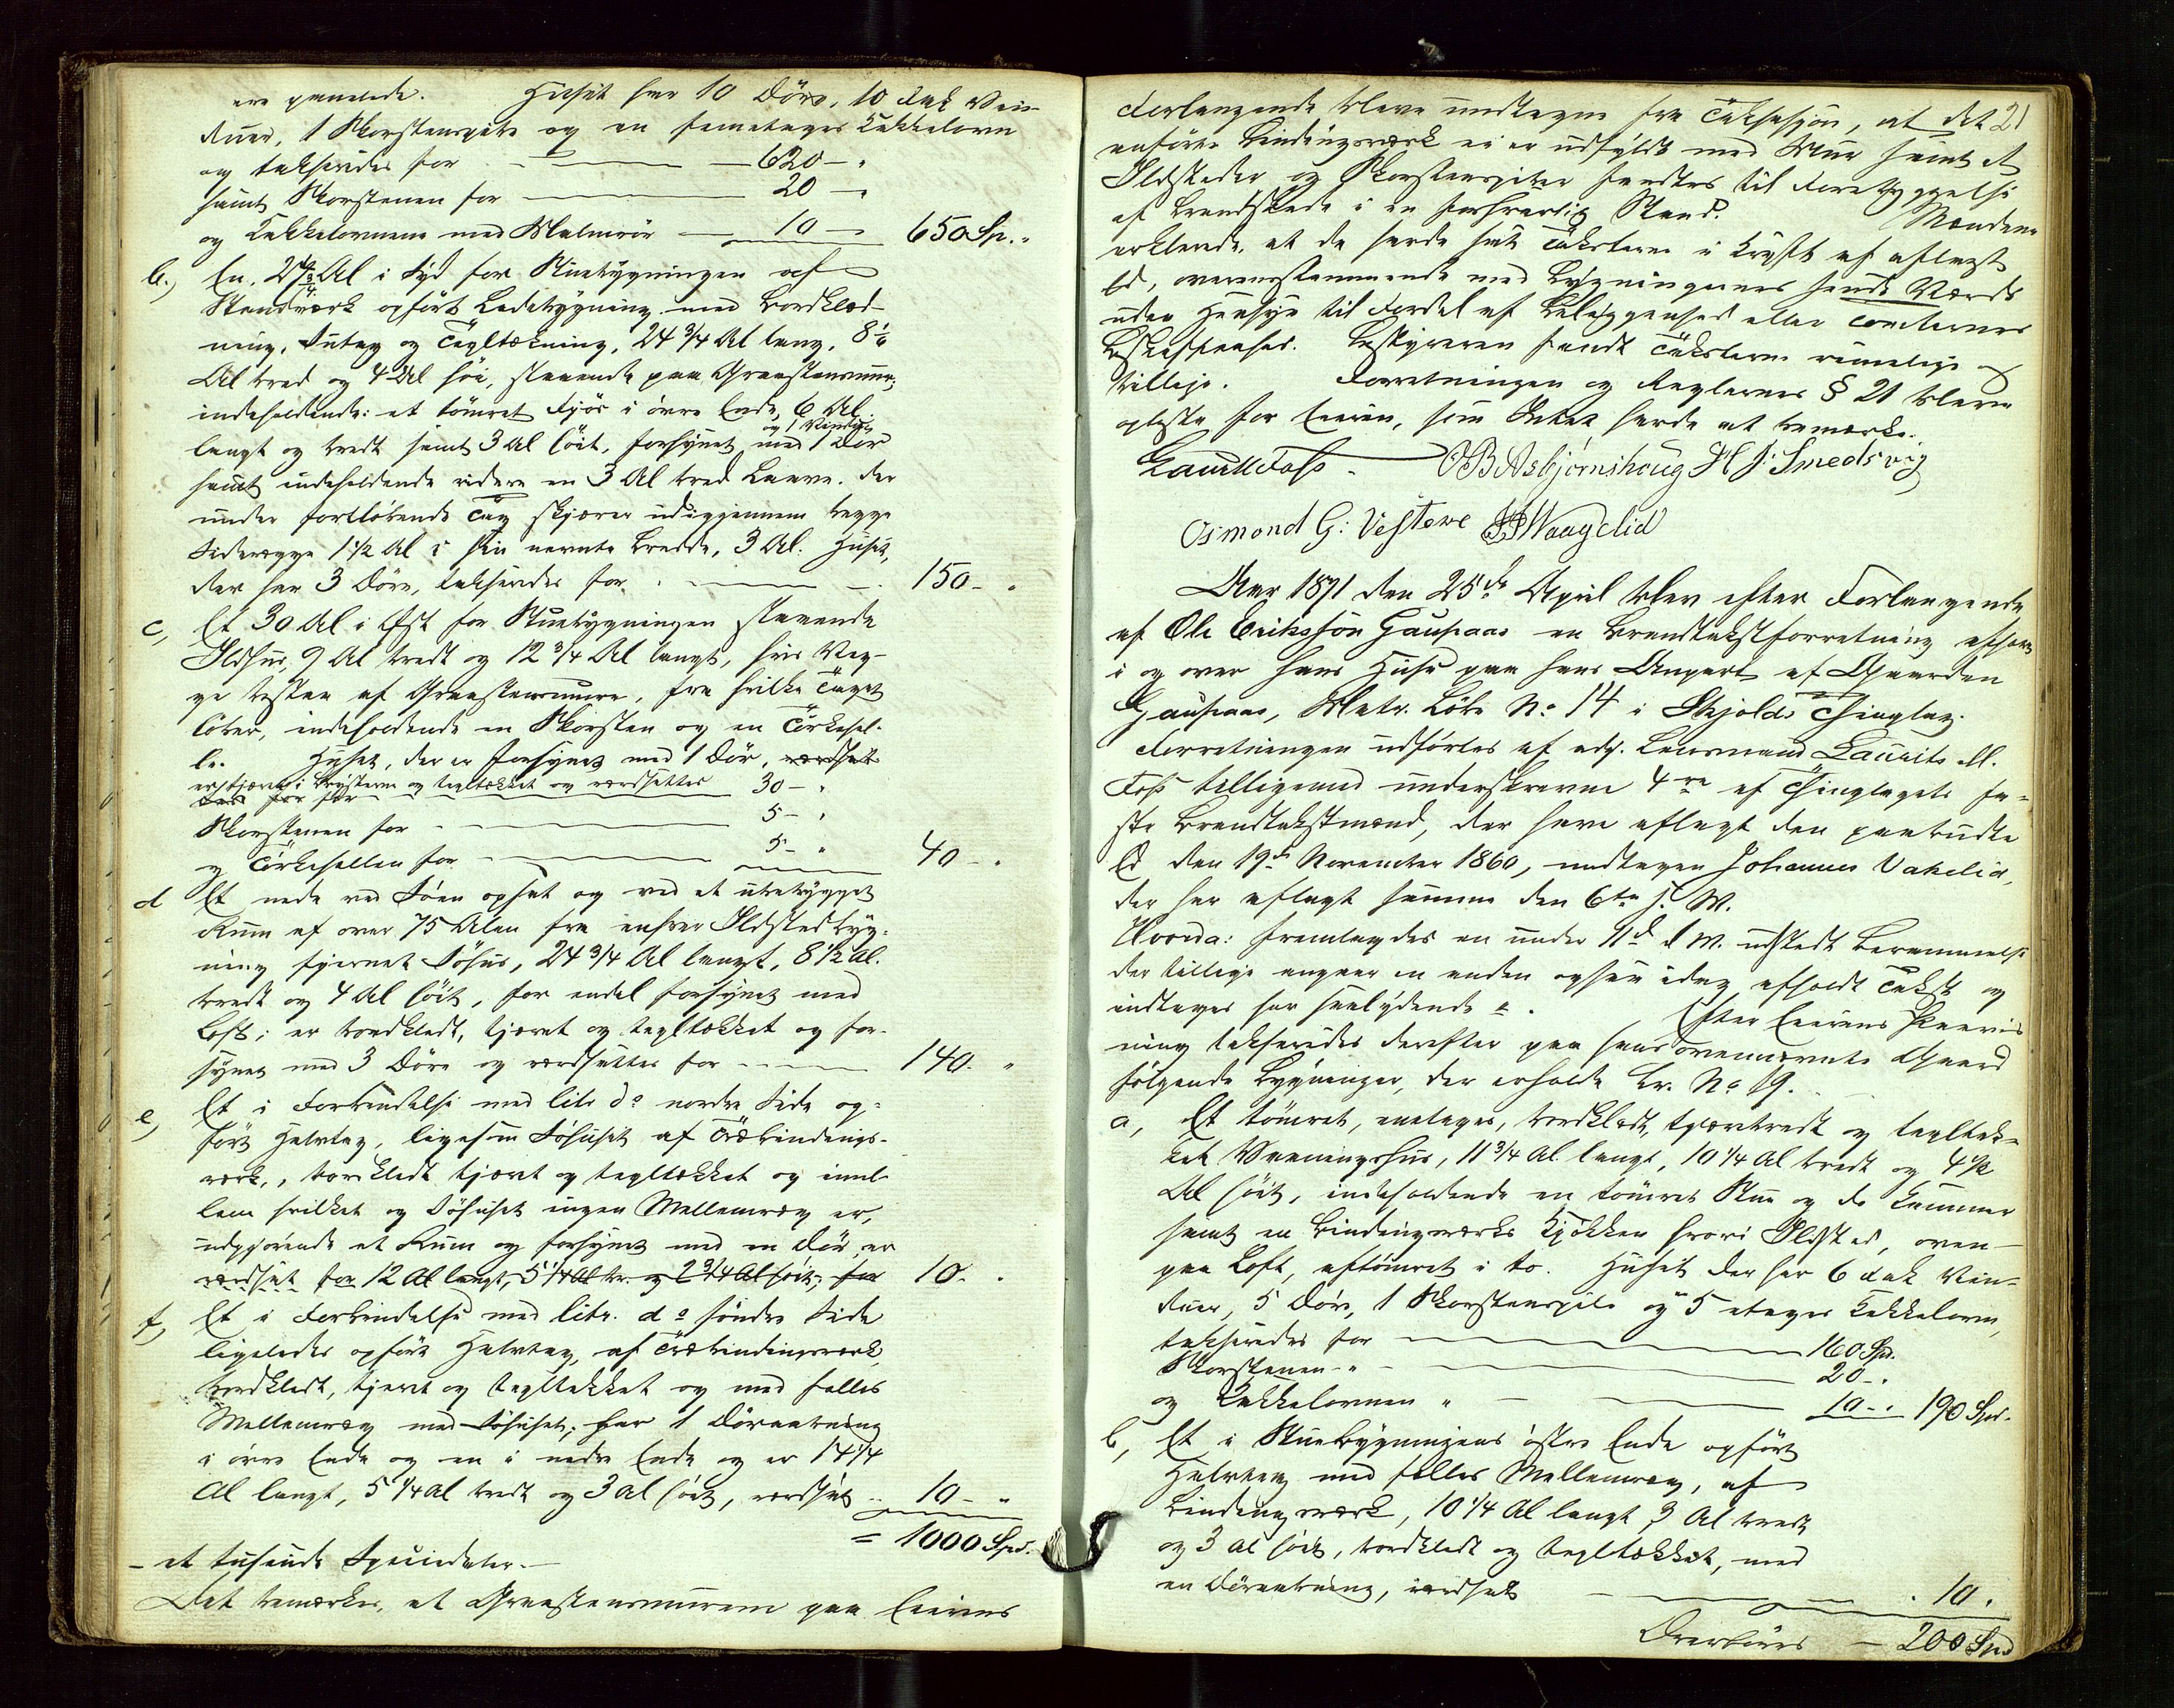 ere panelede. Huset har 10 Döre, 10 Fak Vin-
duer, 1 Skorstenspibe og en femetages Kakkelovn
og takseredes for — 620 – "
samt Skorstenen for — 20 – "
og Kakkelovnen med Malmrör — 10 – 650 Sp. "
b.) En, 27 Al i Syd for Stuebygningen af
Standværk opfört Ladebygning med Bordklæd-
ning, Sutag og Tegltækning, 24 3/4 Al lang, 8 1/4
Al bred og 4 Al höi, staaende paa Graastensmuur,
indeholdende: et tömret Fjös i övre Ende, 6 Al.
langt og bredt samt 3 Al höit, forsynet med 1 Dör og 1 Vindue
samt indeholdende videre en 3 Al bred Laave. der
under fortlöbende Tag skjærer udigjennem begge
Sidevægge 1 1/2 Al i sin nævnte Bredde, 3 Al. Huset,
der har 3 Döre, takseredes for — 150 – "
c, Et 30 Al i Öst for Stuebygningen staaende
Ildhus, 9 Al bredt og 12 3/4 Al langt, hvis Væg-
ge bestaa af Graastensmure, fra hvilke Taget
löber, indeholdende en Skorsten og en Törkehel-
le. Huset, der er forsynet med 1 Dör, værdsat
er tjæret i Brysterne og tegltækket og værdsættes for 30 – "
Skorstenen for — 5 – "
og Törkehellen for — 5 – " 40 – "
d Et nede ved Söen opsat og ved et ubebygget
Rum af over 75 Alen fra enhver Ildstedbyg-
ning fjernet Söhus, 24 3/4 Al langt, 8 1/2 Al.
bredt og 4 Al höit, for endel forsynet med
Loft; er bordklædt, tjæret og tegltækket og for-
synet med 3 Döre og værdsættes for — 140. "
e, Et i Forbindelse med litr d's nordre Side op-
fört Halvtag, ligesom Söhuset af Træbindings-
værk, bordklædt tjæret og tegltækket og imel-
lem hvilket og Söhuset ingen Mellemvæg er,
udgjörende et Rum og forsynet med en Dör, er
værdsat for 12 Al langt, 5 1/4 Al br. og 2 3/4 Al höit; for 10. "
f, Et i Forbindelse med litr. d's söndre Side
ligeledes opfört Halvtag, af Træbindingsværk,
bordklædt, tjæret og tegltækket og med fælles
Mellemvæg med Söhuset; har 1 Döraabning
i övre Ende og en i nedre Ende og er 14 1/4
Al langt, 5 1/4 Al bredt og 3 Al höit, værdsat — 10 – "
= 1000 Spd.
– et tusinde Speciedaler. –
Det bemærkes, at Graastensmurene paa Eierens
21
Forlangende bleve undtagne fra Taksasjon, at det
anförte Bindingsværk ei er udfyldt med Muur samt at
Ildsteder og Skorstenspiber fandtes til Forebyggelse
af Brandskade i en forsvarlig Stand. Mændene
erklærede, at de havde sat Taksterne i Kraft af aflagt
Ed, overensstemmende med Bygningernes sande Værdi
uden Hensyn til Fordel af Beliggenhed eller Tomternes
Beskaffenhed. Bestyreren fandt Taksterne rimelige og
billige. Forretningen og Reglernes § 21 bleve
oplæste for Eieren, som Intet havde at bemærke.
Laur M Foss. OB Asbjörnshoug H J: Smedsvig
Osmond G: Vestewe JJ Waagelid
Aar 1871 den 25de April blev efter Forlangende
af Ole Eriksson Gaupaas en Brandtakstforretning afholdt
i og over hans Huse paa hans Anpart af Gaarden
Gaupaas, Matr. Löbe No 14 i Skjolds Thinglag.
Forretningen udförtes af adj. Lensmand Laurits M.
Foss tilligemed underskrevne 4re af Thinglagets fa-
ste Brandtakstmænd, der have aflagt den paabudte
Ed den 19de November 1860, undtagen Johannes Vakelid,
der har aflagt samme den 6te J. M.
Hvorda: fremlagdes en under 11te d. M. udstedt Berammelse
der tillige angaar en anden ogsaa idag afholdt Takst og
indtages har saalydende: . Efter Eierens Paavis-
ning takseredes derefter paa hans ovennævnte Gaard
fölgende Bygninger, der erholdt Br. No 19.
a, Et tömret, enetages, bordklædt, tjærebredt og tegltæk-
ket Vaaningshus, 11 3/4 Al. langt, 10 1/4 Al bredt og 4 1/2
Al höit, indeholdende en tömret Stue og do Kammer
samt en Bindingsværks Kjökken hvori Ildsted, oven-
paa Loft, aftömret i to. Huset der har 6 Fak Vin-
duer, 5 Döre, 1 Skorstenspibe og 5 etages Kakkelovn,
takseredes for — 160 Spd.
Skorstenen " — 20 – "
og Kakkelovnen " — 10 – " 190 Spd.
b, Et i Stuebygningens östre Ende opfört
Halvtag med fælles Mellemvæg, af
Bindingsværk, 10 1/4 Al langt 3 Al bredt
og 3 Al höit, bordklædt og tegltækket, med
en Döraabning, værdsat — 10.
Overföres — 200 Spd